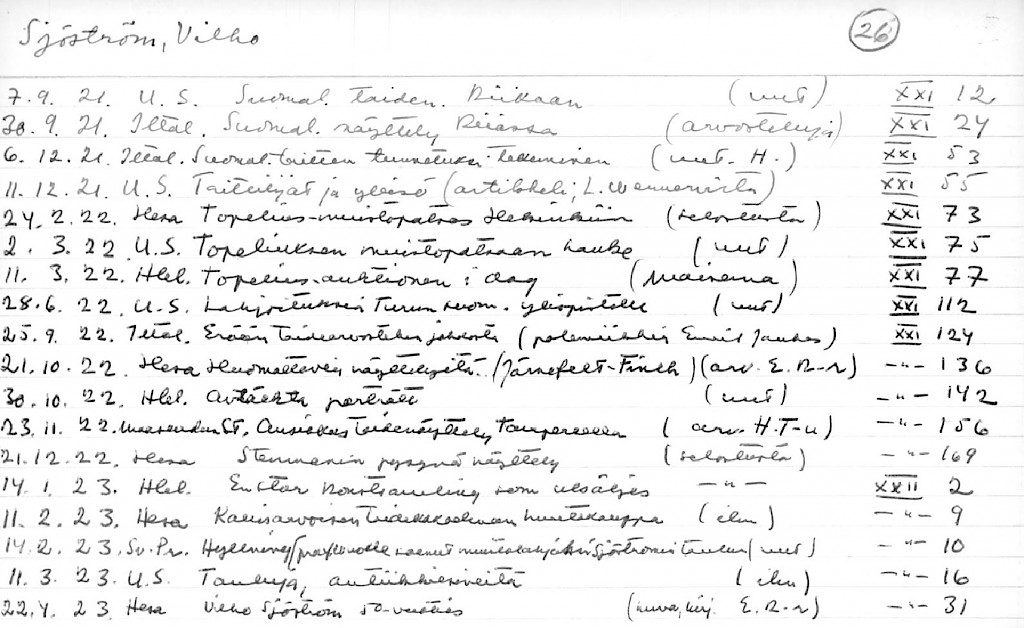 Sjöström, Vilho 26
7.9. 21. U.S. Suomal. taiden. Riikaan (uut) XXI 12
30.9. 21. Iltal. Suomal. näyttely Riiassa (arvosteluja) XXI 24
6.12.21. Iltal. Suomal. taiteen tunnetuksi tekeminen (uut. H.) XXI 53
11.12.21. U.S. Taiteilijat ja yleisö (artikkeli; L. Wennervirta) XXI 55
24.2.22. Hesa Topelius-muistopatsas Helsinkiin (selostusta) XXI 73
2. 3.22. U.S. Topeliuksen muistopatsaan hanke (uut) XXI 75
11. 3.22. Hbl. Topelius-auktionen i dag (Maininta) XXI 77
28.6. 22. U.S. Lahjoituksia Turun suom. yliopistolle (uut) XXI 112
25.9. 22. Iltal. Erään taidearvostelun johdosta (polemiikkia) XXI 124
21.10.22. Hesa Huomattavia näyttelyitä. (Järnefelt-Finch) (arv. E.R-r) -"- 136
30.10. 22. Hbl. porträtt (uut) -"- 142
23.11. 22. Ansiokas taidenäyttely Tampereella (arv. H.T-u) -"- 156
21.12.22. Hesa Stenmanin pysyvä näyttely (selostusta) -"- 169
14.1. 23. Hbl. En stor konstsamling som utsäljes -"- XXII 2
11.2.23. Hesa Kallisarvoisen taidekokoelman huutokauppa (ilm) -"- 9
14.2. 23. Sv.Pr. Hyllning (uut) -"- 10
11.3. 23. U.S. Tauluja, antiikkiesineitä (ilm) -"- 16
22.4. 23 Hesa Vilho Sjöström 50-vuotias (kuva, kirj. E.R-r) -"- 31